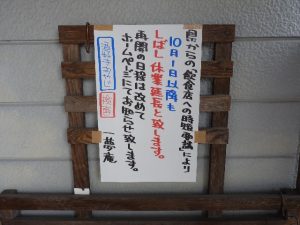 県からの「飲食店への時短要請」により
10月1日以降も
しばし休業延長と致します。
再開の日程は改めて
ホームページにてお知らせ致します。
一夢庵